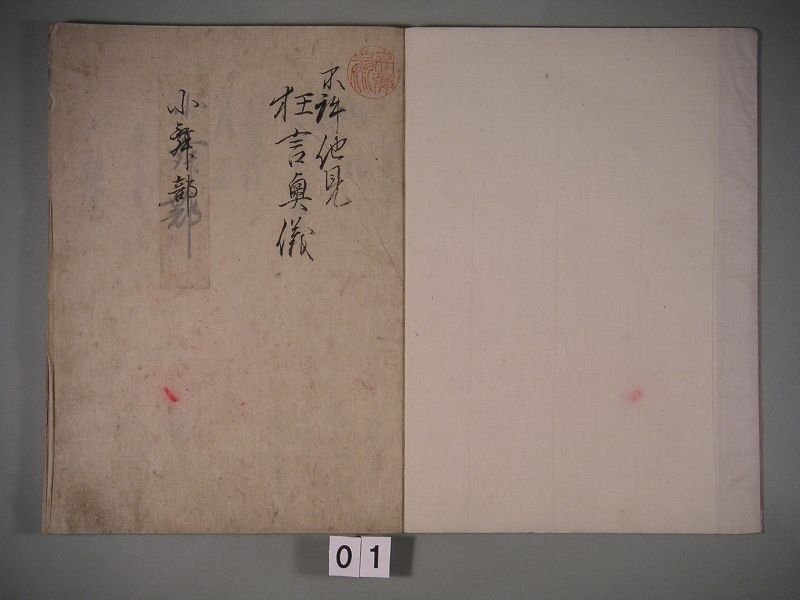 不許他見
狂言奥儀
小舞部
01